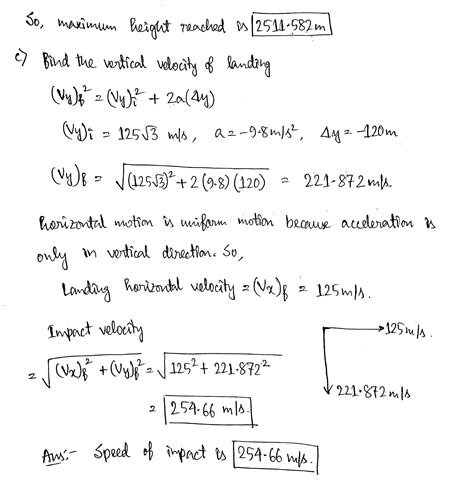 So, maximum height reached is 2511.582m
c) Find the vertical velocity of landing
(Vy)f² = (Vy)i² + 2a(Δy)
(Vy)i = 125√3 m/s, a = -9.8m/s², Δy = -120m
(Vy)f = √(125√3)² + 2(9.8)(120) = 221.872m/s.
Horizontal motion is uniform motion because acceleration is
only in vertical direction. So,
Landing horizontal velocity = (Vx)f = 125m/s.
Impact velocity
= √(Vx)f² + (Vy)f² = √125² + 221.872²
= 254.66 m/s.
→125m/s.
↓ 221.872m/s
Ans:- Speed of impact is 254.66 m/s.